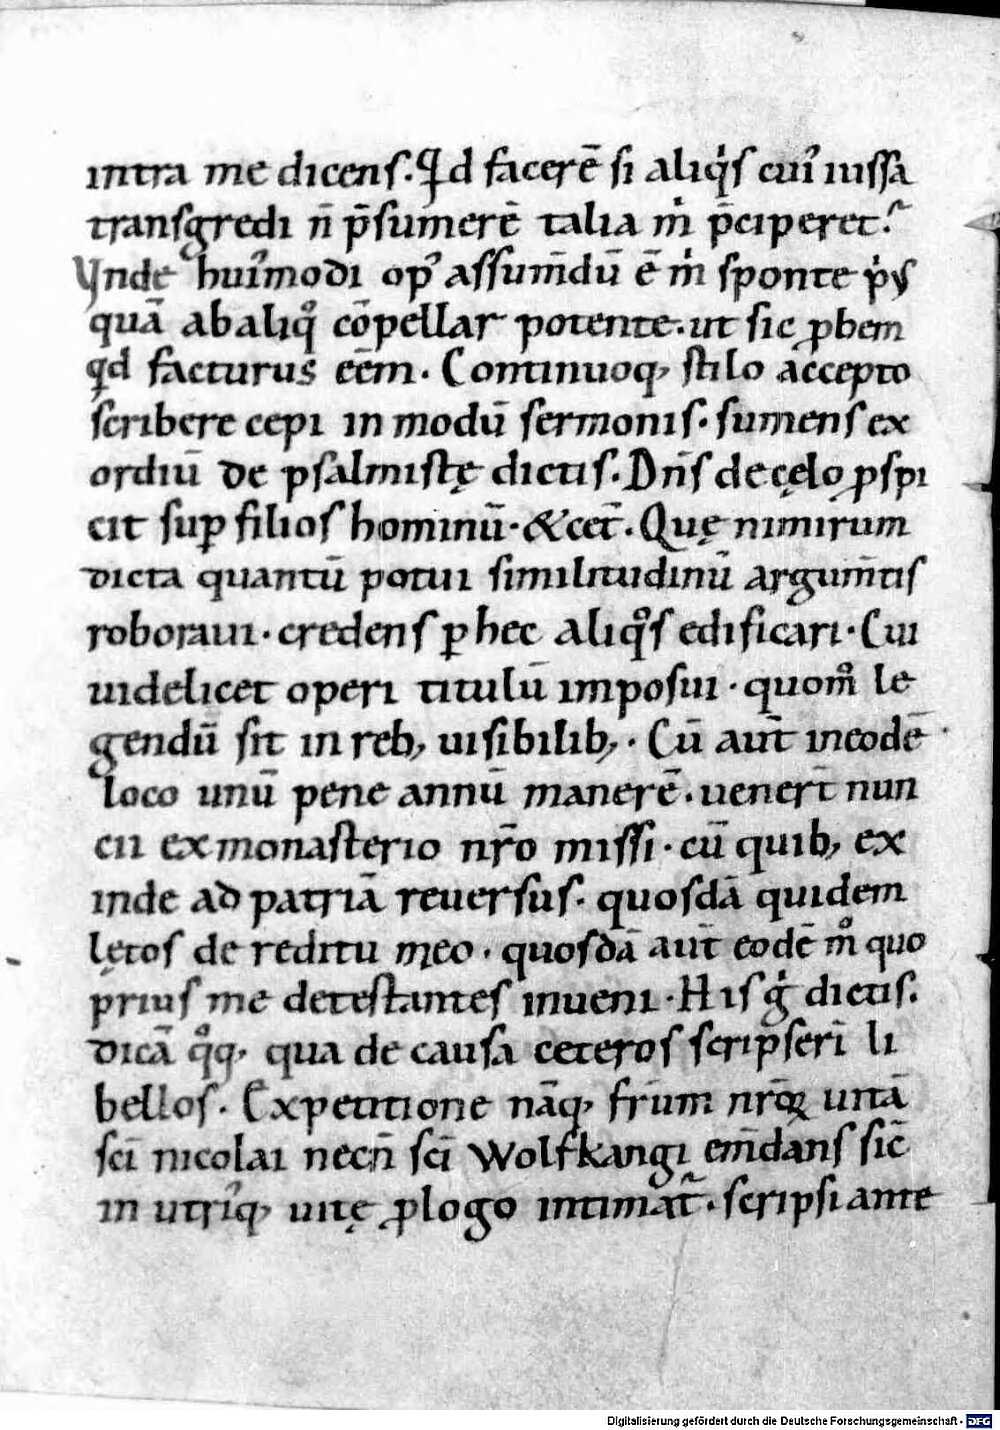 intra me dicens. Qd facerē si aliq̇s cuiꝰ iussa
transgredi n̄ p̄sumerē talia m̍ p̄ciperet?
Vnde huiꝰmodi opꝰ assum̄dū ē m̍ sponte p̍ꝰ
quā ab aliqͦ cōpellar potente. ut sic ꝓbem
qd facturus eēm. Continuoq, stilo accepto
scribere cepi in modū sermonis. sumens ex
ordiū de psalmistę dictis. Dn̄s de cęlo ꝓspi
cit suꝑ filios hominū. & cet̄. Quę nimirum
dicta quantū potui similitudinū argum̄tis
roboraui. credens ꝑ hec aliqͦs edificari. Cui
uidelicet operi titulū imposui. quomͦ le
gendū sit in reb, uisibilib,. Cū aut̄ in eodē
loco unū pene annū manerē. uenert̄ nun
cii ex monasterio nr̄o missi. cū quib, ex
inde ad patriā reuersus. quosdā quidem
lętos de reditu meo. quosdā aut̄ eodē mͦ quo
prius me detestantes inueni. His g̍ dictis.
dicā qͦq, qua de causa ceteros scripseri̅ li
bellos. Ex petitione nāq, fr̄um nr̄oꝝ uitā
sc̄i nicolai necn̄ sc̄i Wolfkangi em̄dans sic̄
in utriꝰq, uitę ꝓlogo intimat᷑. scripsi ante
Digitalisierung gefördert durch die Deutsche Forschungsgemeinschaft - DFG